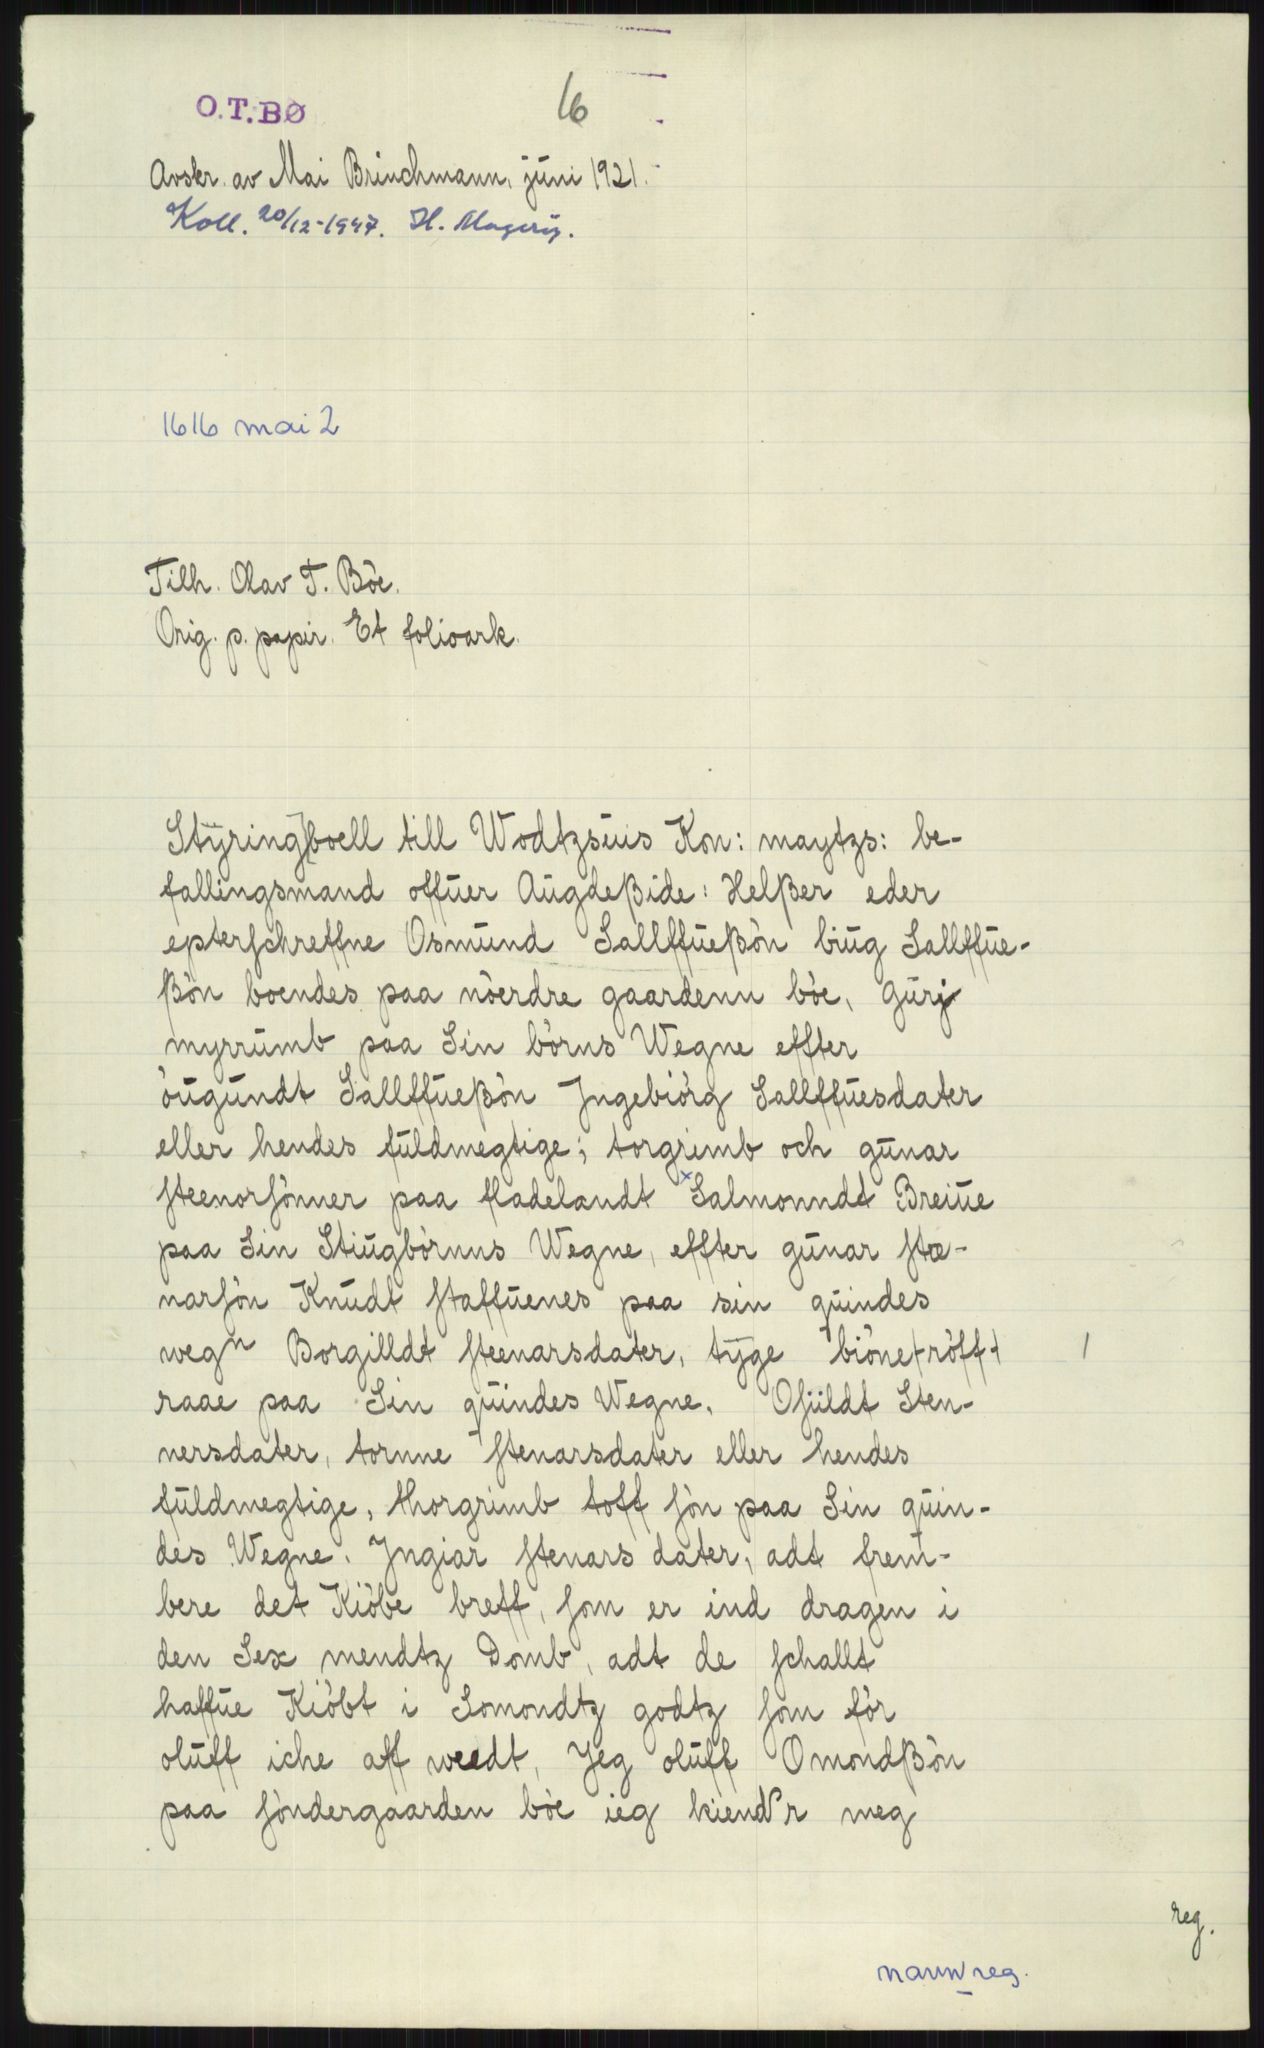 O.T.BØ
16
Avskr. av Mai Brinchmann, juni 1921.
Koll. 20/12-1947. H. Magerøy.
1616 mai 2
Tilh. Olav T. Böe.
Orig. p. papir. Et folioark.
Styringboell till Wodtzseüs Kon: maytzs: be-
fallingsmand offuer Augdeßide: Helßer eder
epterschreffne Osmund Sallffueßön biug Sallffue-
ßön boendes paa nöerdre gaardenn böe, Gurj
myrrumb paa Sin börns Wegne effter
öugundt Sallffueßön Jngebiörg Sallffuesdater
eller hendes fuldmegtige; torgrimb och gunar
steenorsönner paa fladelandt xSalmonndt Breiue
paa Sin Stiugbörnns Wegne, effter gunar stæ-
narsön Knudt staffuenes paa sin quindes
wegn Borgilldt steenarsdater, tyge biönetröfft 1
raae paa Sin quindes Wegne, Osüldt Sten-
nersdater, tornne stenarsdater eller hendes
fuldmegtige, thorgrimb toff sön paa Sin quin-
des Wegne. Jngiar stenars dater, adt frem-
bere det Kiöbe breff, som er ind dragen i
den Sex mendtz Domb, adt de schallt
haffue Kiöbt i Somondtz godtz som för
oluff iche aff weedt, Jeg oluff Omondßön
paa söndergaarden böe ieg kiender meg
reg.
navnreg.